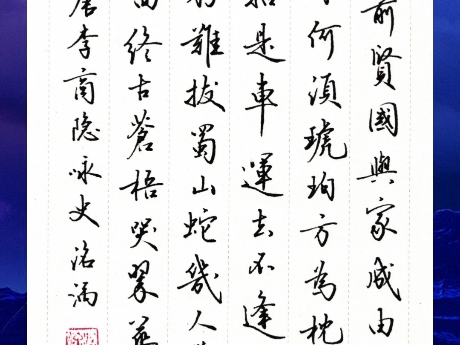 前賢國與家成由
何湏琥珀方為枕
始是車運去不逢
難拔蜀山蛇幾人
終古蒼梧哭翠華
唐李商隐咏史